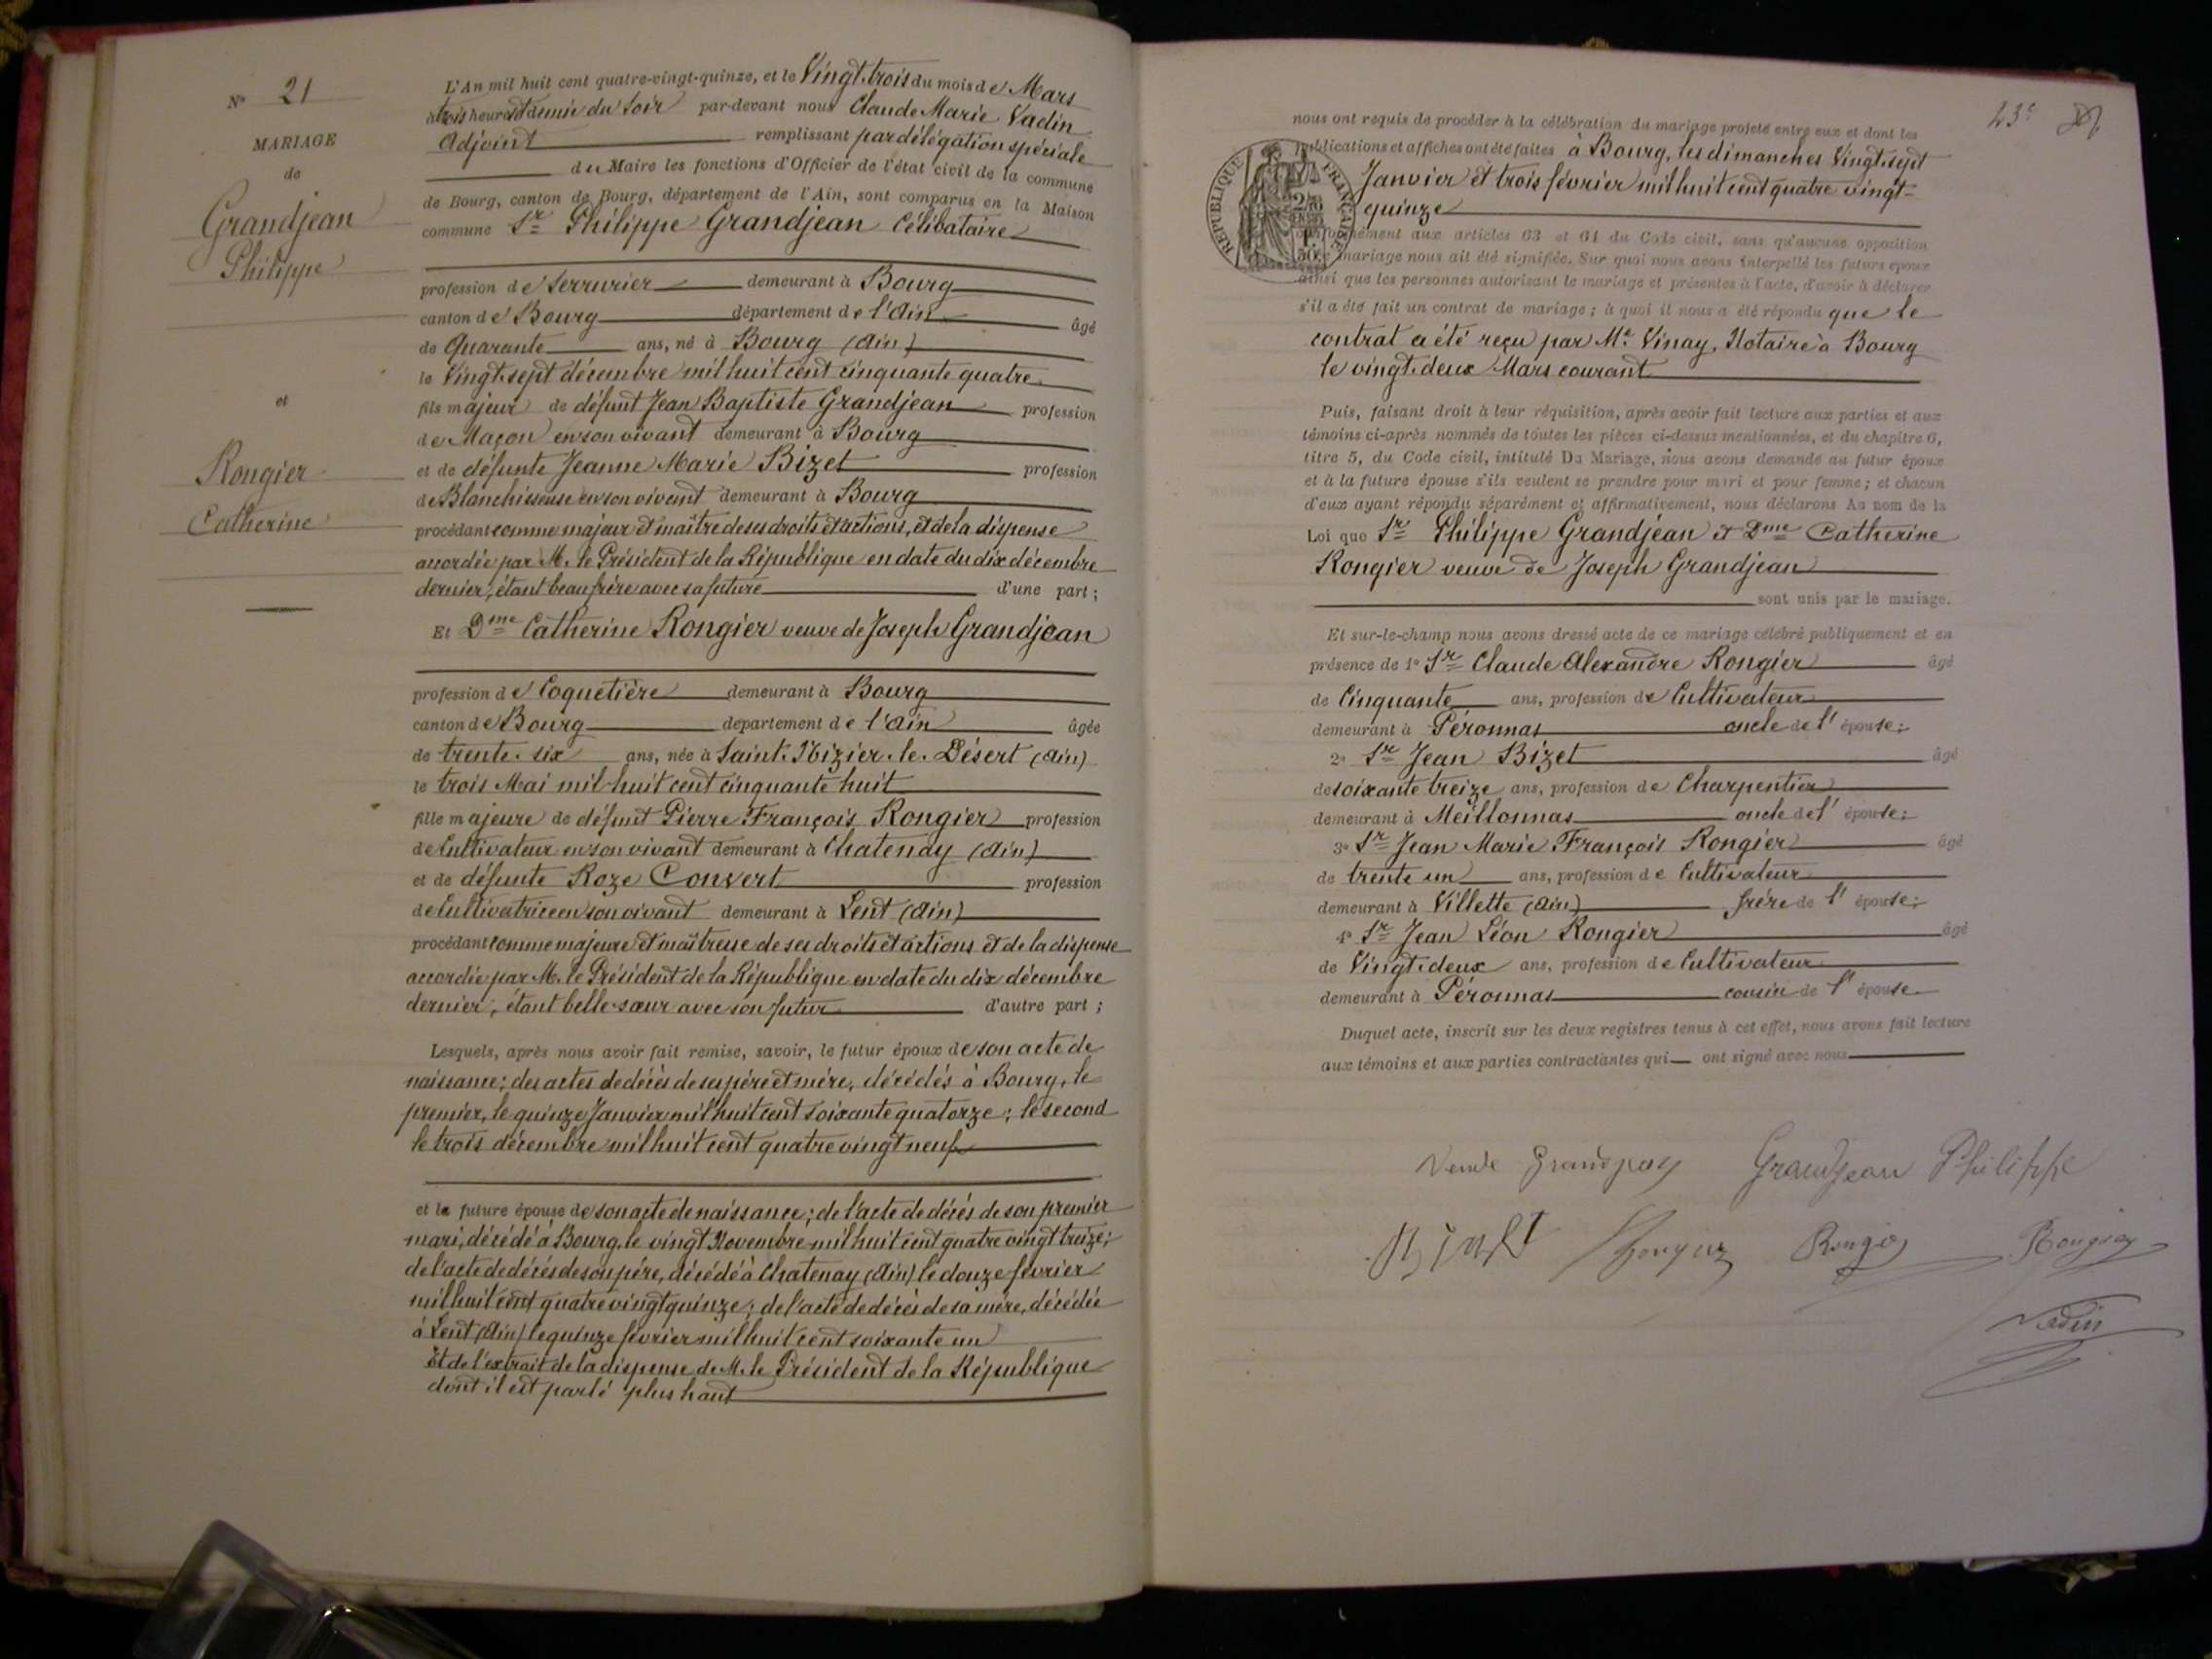 N° 21
MARIAGE
de
Grandjean
Philippe
et
Rongier
Catherine
L'An mil huit cent quatre-vingt-quinze, et le Vingt-trois du mois de Mars
à trois heures et demie du soir par-devant nous Claude Marie Vadin
Adjoint remplissant par délégation spéciale
du Maire les fonctions d'Officier de l'état civil de la commune
de Bourg, canton de Bourg, département de l'Ain, sont comparus en la Maison
commune Sr Philippe Grandjean Célibataire
profession de Serrurier demeurant à Bourg
canton de Bourg département de l'Ain âgé
de Quarante ans, né à Bourg (Ain)
le Vingt-sept décembre mil huit cent cinquante quatre
fils majeur de défunt Jean Baptiste Grandjean profession
de Maçon en son vivant demeurant à Bourg
et de défunte Jeanne Marie Bizet profession
de Blanchisseuse en son vivant demeurant à Bourg
procédant comme majeur et maître de ses droits et actions, et de la dispense
accordée par M. le Président de la République en date du dix décembre
dernier, étant beau frère avec sa future d'une part;
Et Dme Catherine Rongier veuve de Joseph Grandjean
profession de Coquetière demeurant à Bourg
canton de Bourg département de l'Ain âgée
de trente-six ans, née à Saint-Nizier-le-Désert (Ain)
le trois Mai mil huit cent cinquante huit
fille majeure de défunt Pierre François Rongier profession
de Cultivateur en son vivant demeurant à Chatenay (Ain)
et de défunte Roze Convert profession
de Cultivatrice en son vivant demeurant à Lent (Ain)
procédant comme majeure et maîtresse de ses droits et actions et de la dispense
accordée par M. le Président de la République en date du dix décembre
dernier, étant belle-sœur avec son futur d'autre part;
Lesquels, après nous avoir fait remise, savoir, le futur époux de son acte de
naissance; des actes de décès de ses père et mère, décédés à Bourg, le
premier, le quinze Janvier mil huit cent soixante quatorze; le second
le trois décembre mil huit cent quatre vingt neuf
et la future épouse de son acte de naissance; de l'acte de décès de son premier
mari, décédé à Bourg, le vingt Novembre mil huit cent quatre vingt treize;
de l'acte de décès de son père, décédé à Chatenay (Ain) le douze février
mil huit cent quatre vingt quinze; de l'acte de décès de sa mère, décédée
à Lent (Ain) le quinze février mil huit cent soixante un
et de l'extrait de la dispense de M. le Président de la République
dont il est parlé plus haut
43e
REPUBLIQUE FRANÇAISE
nous ont requis de procéder à la célébration du mariage projeté entre eux et dont les
publications et affiches ont été faites à Bourg, les dimanches Vingt-sept
Janvier et trois février mil huit cent quatre vingt-
quinze
conformément aux articles 63 et 64 du Code civil, sans qu'aucune opposition
mariage nous ait été signifiée. Sur quoi nous avons interpellé les futurs époux
ainsi que les personnes autorisant le mariage et présentes à l'acte, d'avoir à déclarer
s'il a été fait un contrat de mariage; à quoi il nous a été répondu que le
contrat a été reçu par Me Vinay, Notaire à Bourg
le vingt-deux Mars courant
Puis, faisant droit à leur réquisition, après avoir fait lecture aux parties et aux
témoins ci-après nommés de toutes les pièces ci-dessus mentionnées, et du chapitre 6,
titre 5, du Code civil, intitulé Du Mariage, nous avons demandé au futur époux
et à la future épouse s'ils veulent se prendre pour mari et pour femme; et chacun
d'eux ayant répondu séparément et affirmativement, nous déclarons Au nom de la
Loi que Sr Philippe Grandjean et Dme Catherine
Rongier veuve de Joseph Grandjean
sont unis par le mariage.
Et sur-le-champ nous avons dressé acte de ce mariage célébré publiquement et en
présence de 1° Sr Claude Alexandre Rongier âgé
de Cinquante ans, profession de Cultivateur
demeurant à Péronnas oncle de l'épouse;
2° Sr Jean Bizet âgé
de soixante treize ans, profession de Charpentier
demeurant à Meillonnas oncle de l'épouse;
3° Sr Jean Marie François Rongier âgé
de trente un ans, profession de Cultivateur
demeurant à Villette (Ain) frère de l'épouse;
4° Sr Jean Léon Rongier âgé
de Vingt-deux ans, profession de Cultivateur
demeurant à Péronnas cousin de l'épouse
Duquel acte, inscrit sur les deux registres tenus à cet effet, nous avons fait lecture
aux témoins et aux parties contractantes qui ont signé avec nous
Grandjean Philippe
Vadin